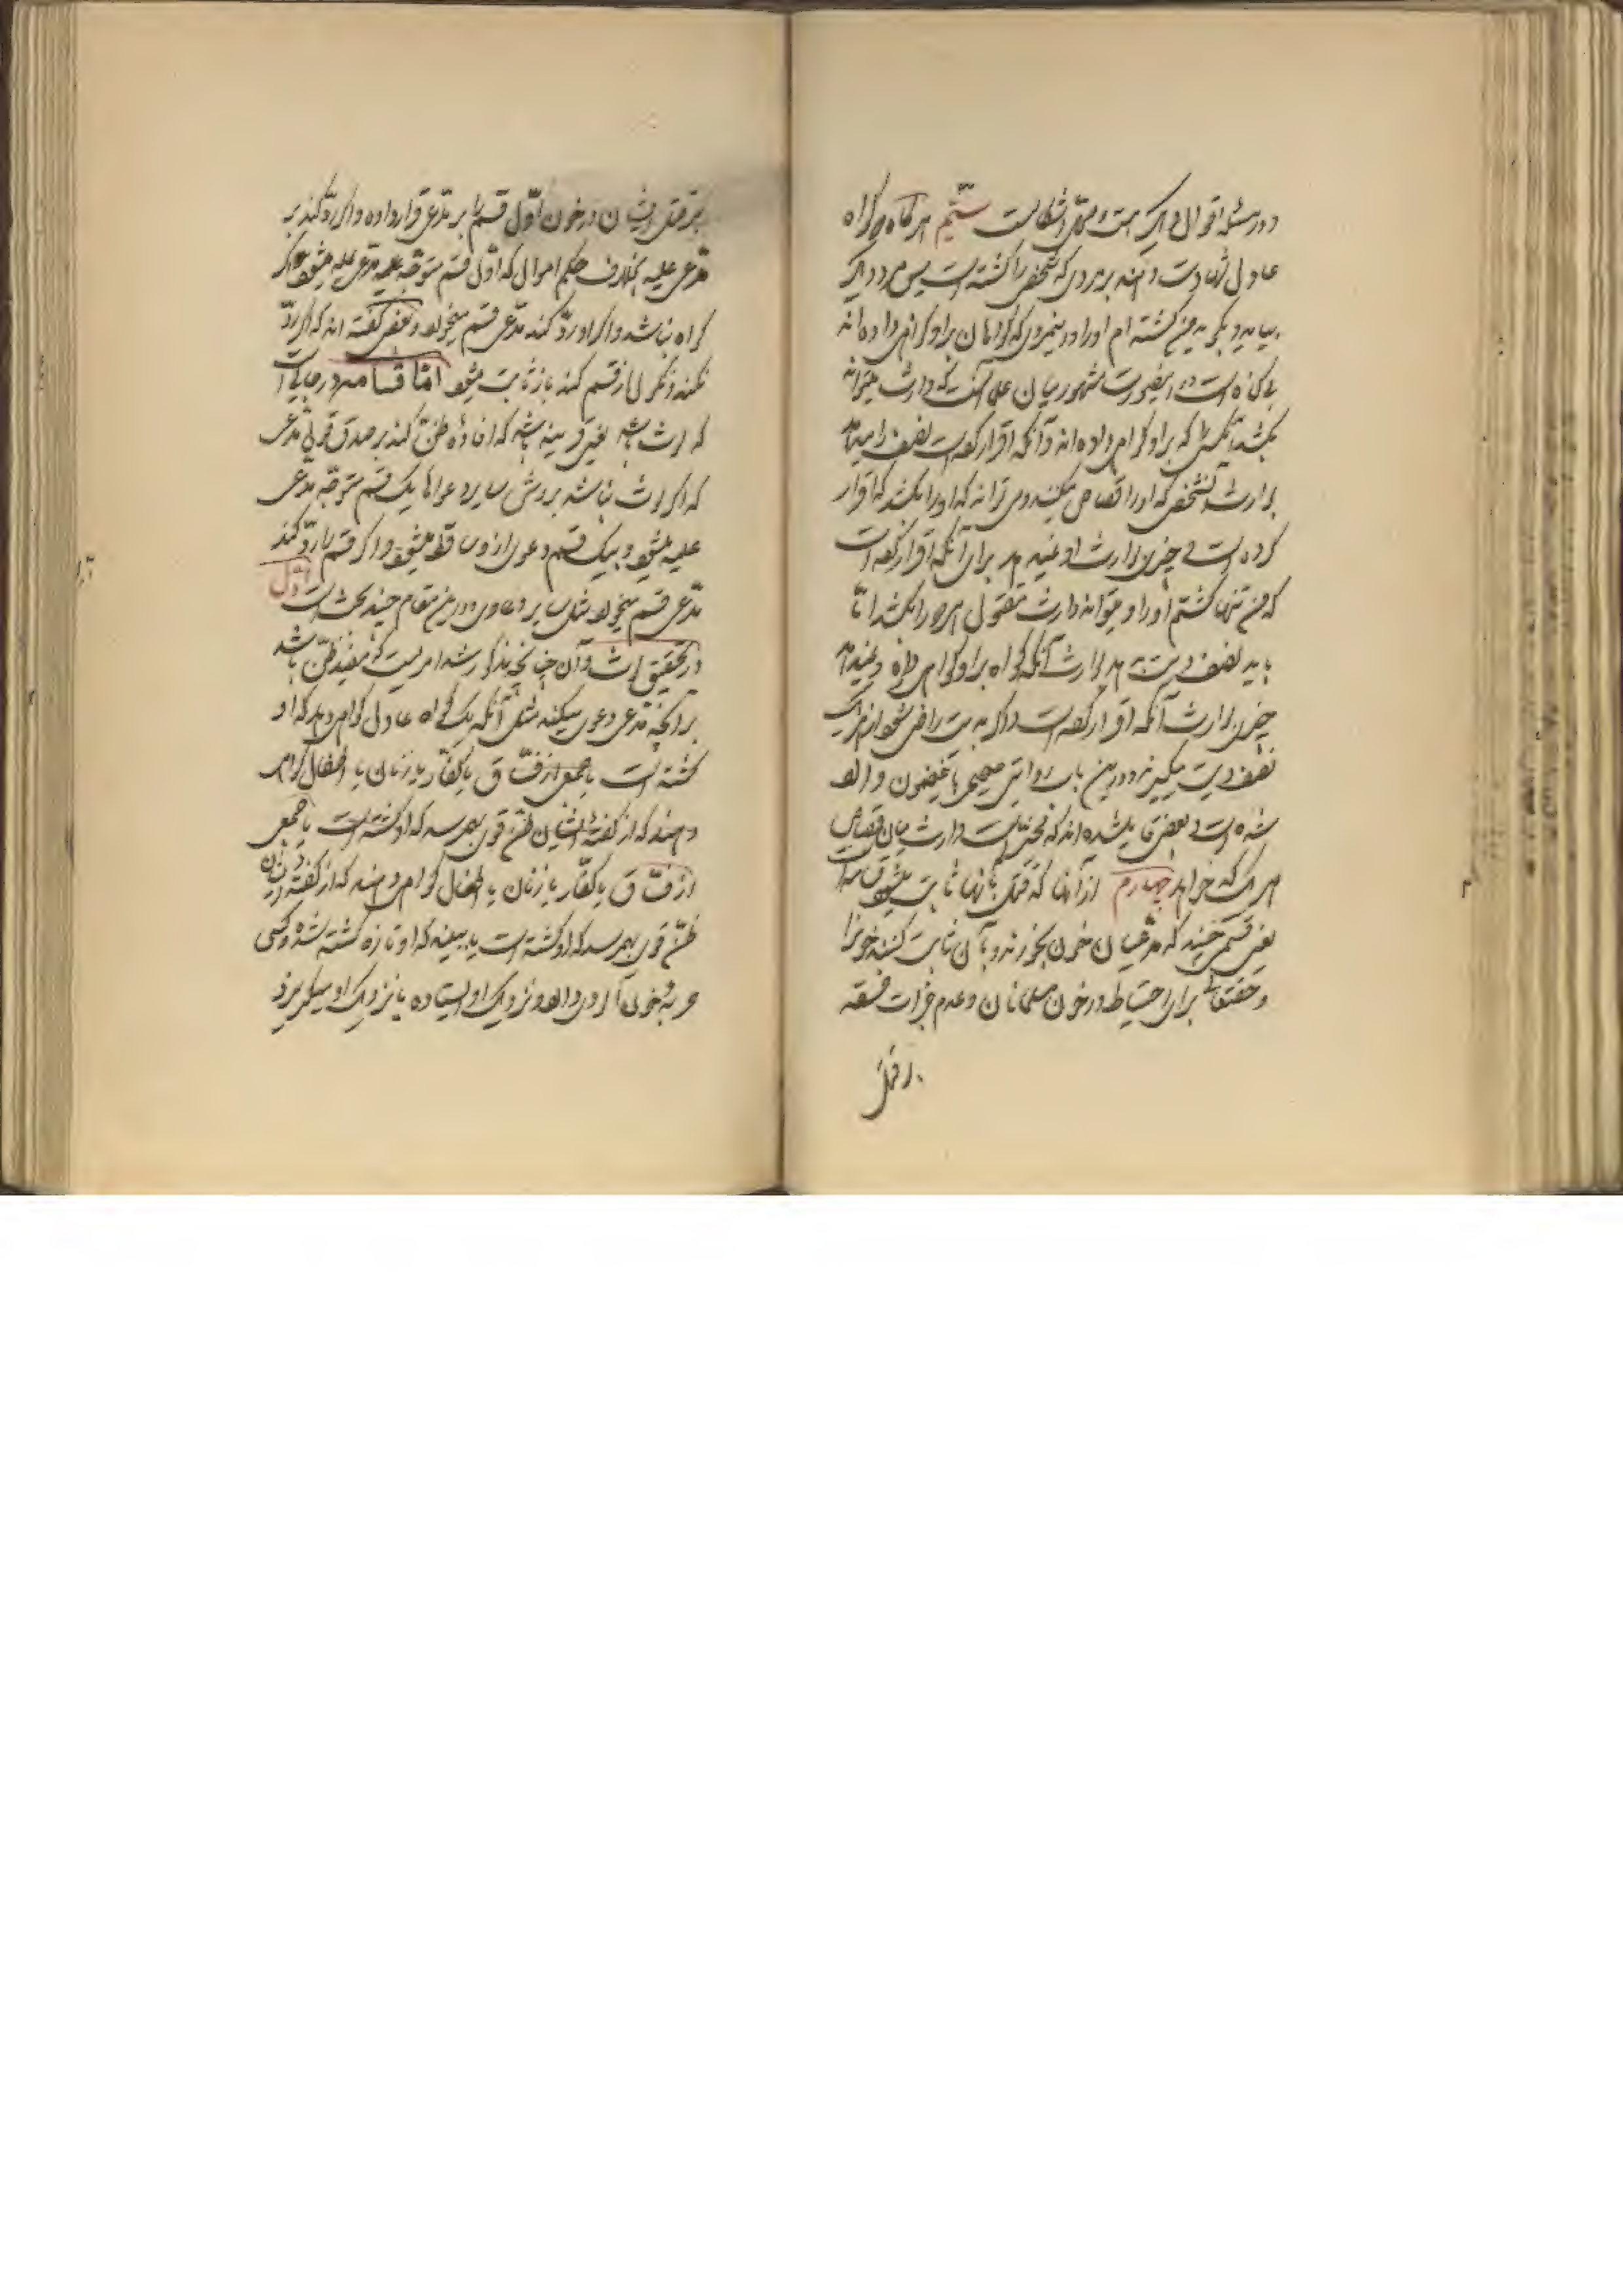 و در مسئله اقوال دیگر هست و محل اشکالست ششم هر گاه دو گواه
عادل شهادت دهند بر مردی که شخصی را کشته است پس مرد دیگر
بیاید و بگوید من کشته ام او را و این مردی که گواهان بر او گواهی داده اند
بی گناه است در اینصورت مشهور میان علما آنست که وارث میتواند
بکشد آنکس را که بر او گواهی داده اند و آنکه اقرار کرده است نصف دیه میدهد
بوارث آنشخص که او را قصاص میکنند و می تواند که او را بکشد که اقرار
کرده است و چیزی بوارث او نمیدهد برای آنکه اقرار کرده است
که من تنها کشتم او را و میتواند وارث مقتول هر دو را بکشد اما
باید نصف دیت بدهد بوارث آنکه گواه بر او گواهی داده و نمیدهد
چیزی بوارث آنکه اقرار کرده است و اگر به دیت راضی شود از هر یک
نصف دیت میگیرد و در این باب روایتی صحیح باین مضمون وارد
شده است و بعضی قایل شده اند که مخیر است وارث میان قصاص
هر یک که خواهد چهارم از آنها که قتل بآنها ثابت میشود قسامه است
یعنی قسمی چند که مدعیان خون بخورند و بآن ثابت کنند خون را
و حقتعالی برای احتیاط در خون مسلمانان و عدم جرات فسقه
بر قتل
بر قتل ایشان در خون اول قسم را بر مدعی قرار داده و اگر رد کند بر
مدعی علیه بخلاف حکم اموال که اول قسم متوجه مدعی علیه میشود اگر
گواه نباشد و اگر او رد کند مدعی قسم میخورد و بعضی گفته اند که اگر رد
نکند و نکول از قسم کند باز ثابت میشود اما قسامه در جائی است
که لوث باشد یعنی قرینه باشد که افاده ظن کند بر صدق قول مدعی
که اگر لوث نباشد بروش سایر دعواها یک قسم متوجه مدعی
علیه میشود و بیک قسم دعوی از او ساقط میشود و اگر قسم را رد کند
مدعی قسم میخورد مثل سایر دعاوی و در این مقام چند بحث است اول
در تحقیق لوث و آن چنانچه مذکور شد امریست که مفید ظن باشد
بر آنچه مدعی دعوی میکند مثل آنکه یک گواه عادل گواهی دهد که او
کشته است یا جمعی از فساق یا کفار یا زنان یا اطفال گواهی
دهند که از گفته ایشان ظن قوی بهم رسد که او کشته است یا جمعی
از فساق یا کفار یا زنان یا اطفال گواهی دهند که از گفته ایشان
ظن قوی بهم رسد که او کشته است یا ببیند که او تازه کشته شده و کسی
حربه خون آلودی دارد و نزدیک او ایستاده یا نزدیک او میگریزد